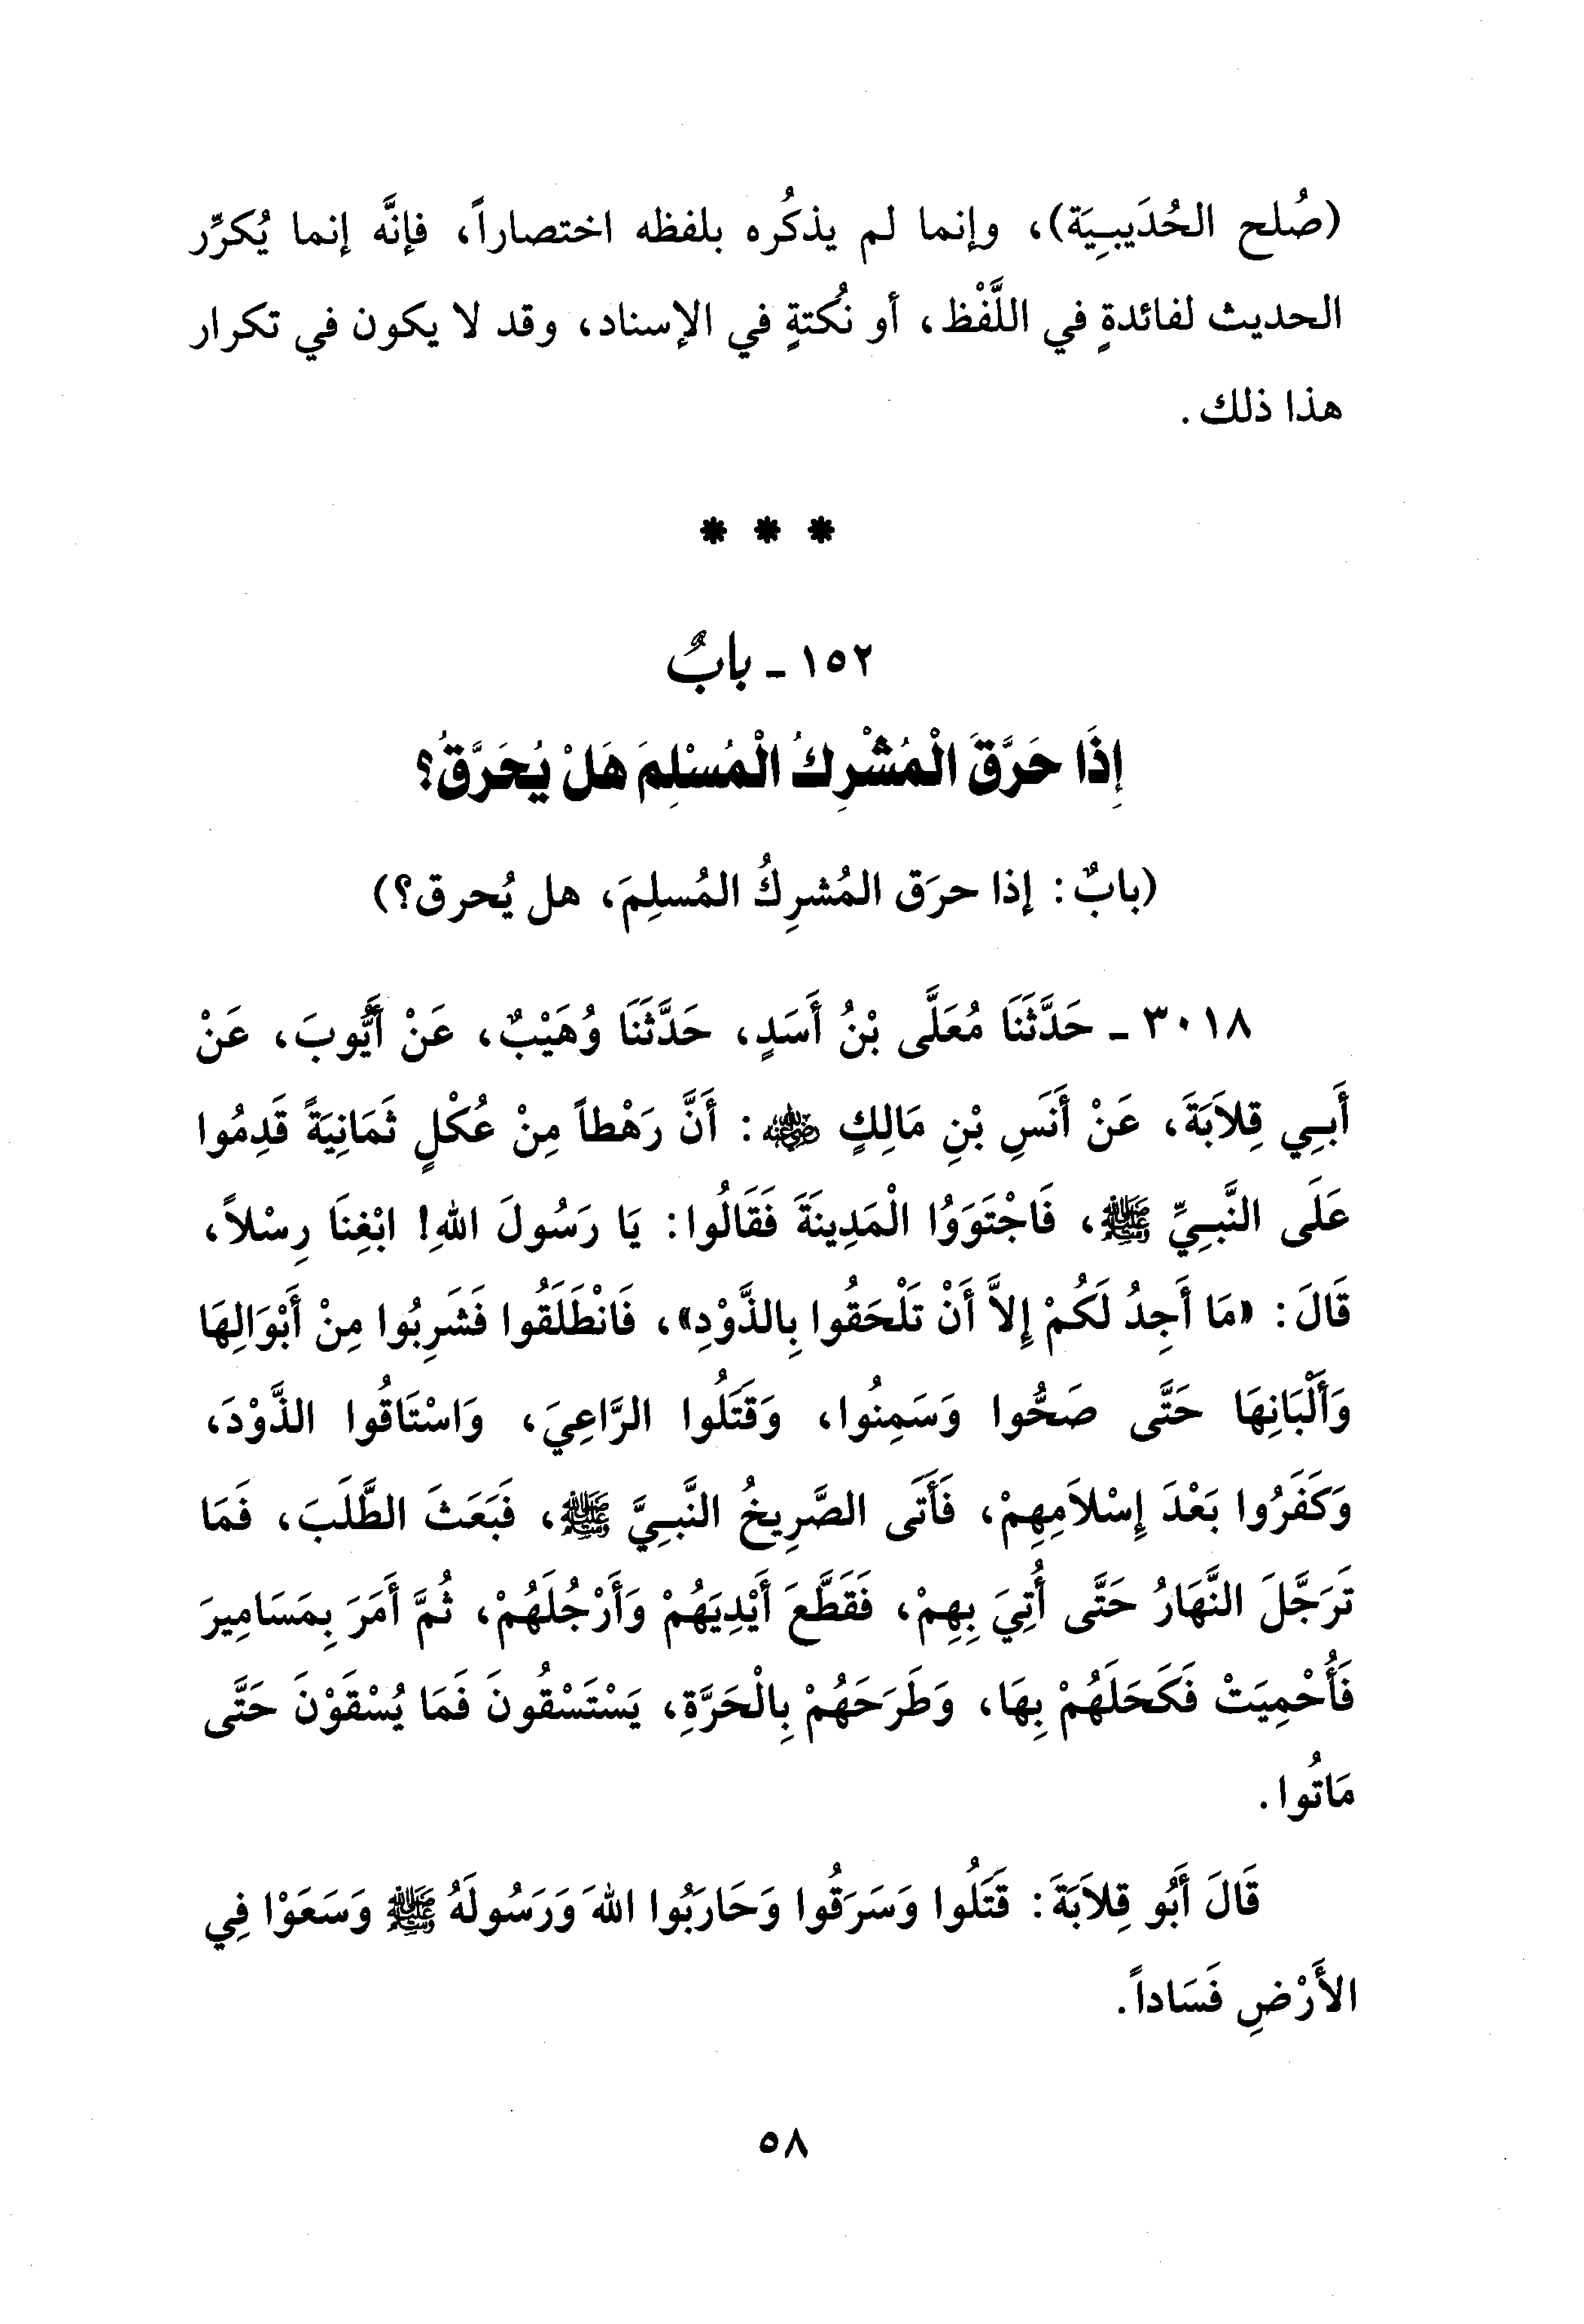 (صُلح الحُدَيبـِيَة)، وإنما لم يذكُره بلفظه اختصاراً، فإنَّه إنما يُكرِّر
الحديث لفائدةٍ في اللَّفْظ، أو نُكتةٍ في الإسناد، وقد لا يكون في تكرار
هذا ذلك.
* * *
١٥٢ ـ بابٌ
إِذَا حَرَّقَ الْمُشْرِكُ الْمُسْلِمَ هَلْ يُحَرَّقُ؟
(بابٌ: إذا حرَق المُشرِكُ المُسلِمَ، هل يُحرق؟)
٣٠١٨ ـ حَدَّثَنَا مُعَلَّى بْنُ أَسَدٍ، حَدَّثَنَا وُهَيْبٌ، عَنْ أَيُّوبَ، عَنْ
أَبـِي قِلاَبَةَ، عَنْ أَنَسِ بْنِ مَالِكٍ ﵁: أَنَّ رَهْطاً مِنْ عُكْلٍ ثَمَانِيَةً قَدِمُوا
عَلَى النَّبـِيِّ ﷺ، فَاجْتَوَوُا الْمَدِينَةَ فَقَالُوا: يَا رَسُولَ اللهِ! ابْغِنَا رِسْلاً،
قَالَ: «مَا أَجِدُ لَكُمْ إِلاَّ أَنْ تَلْحَقُوا بِالذَّوْدِ»، فَانْطَلَقُوا فَشَرِبُوا مِنْ أَبْوَالِهَا
وَأَلْبَانِهَا حَتَّى صَحُّوا وَسَمِنُوا، وَقَتَلُوا الرَّاعِيَ، وَاسْتَاقُوا الذَّوْدَ،
وَكَفَرُوا بَعْدَ إِسْلاَمِهِمْ، فَأَتَى الصَّرِيخُ النَّبـِيَّ ﷺ، فَبَعَثَ الطَّلَبَ، فَمَا
تَرَجَّلَ النَّهَارُ حَتَّى أُتِيَ بِهِمْ، فَقَطَّعَ أَيْدِيَهُمْ وَأَرْجُلَهُمْ، ثُمَّ أَمَرَ بِمَسَامِيرَ
فَأُحْمِيَتْ فَكَحَلَهُمْ بِهَا، وَطَرَحَهُمْ بِالْحَرَّةِ، يَسْتَسْقُونَ فَمَا يُسْقَوْنَ حَتَّى
مَاتُوا.
قَالَ أَبُو قِلاَبَةَ: قَتَلُوا وَسَرَقُوا وَحَارَبُوا اللهَ وَرَسُولَهُ ﷺ وَسَعَوْا فِي
الأَرْضِ فَسَاداً.
٥٨